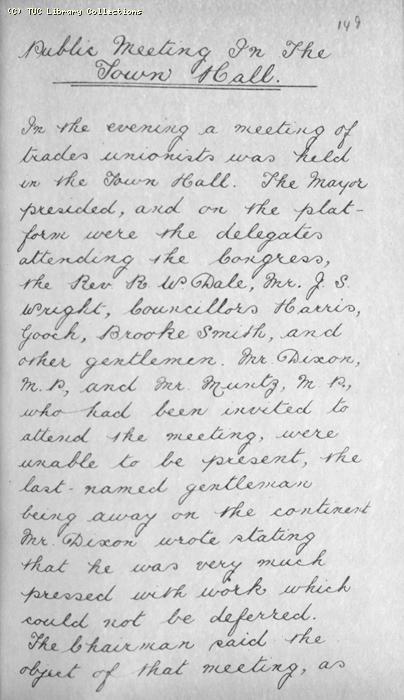 (C) TUC Library Collections
149
Public Meeting In The
Town Hall.
In the evening a meeting of
trades unionists was held
in the Town Hall. The Mayor
presided, and on the plat-
form were the delegates
attending the Congress,
the Rev R W Dale, Mr. J. S.
Wright, Councillors Harris,
Gooch, Brooke Smith, and
other gentlemen. Mr. Dixon,
M. P, and Mr. Muntz, M P,
who had been invited to
attend the meeting, were
unable to be present, the
last-named gentleman
being away on the continent
Mr. Dixon wrote stating
that he was very much
pressed with work which
could not be deferred.
The Chairman said the
object of that meeting, as